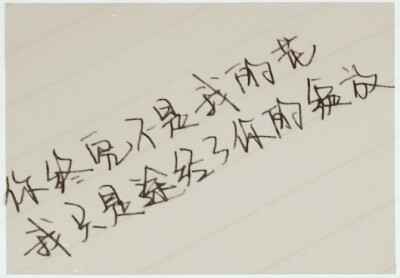 你终究不是我的花
我只是途经了你的绽放